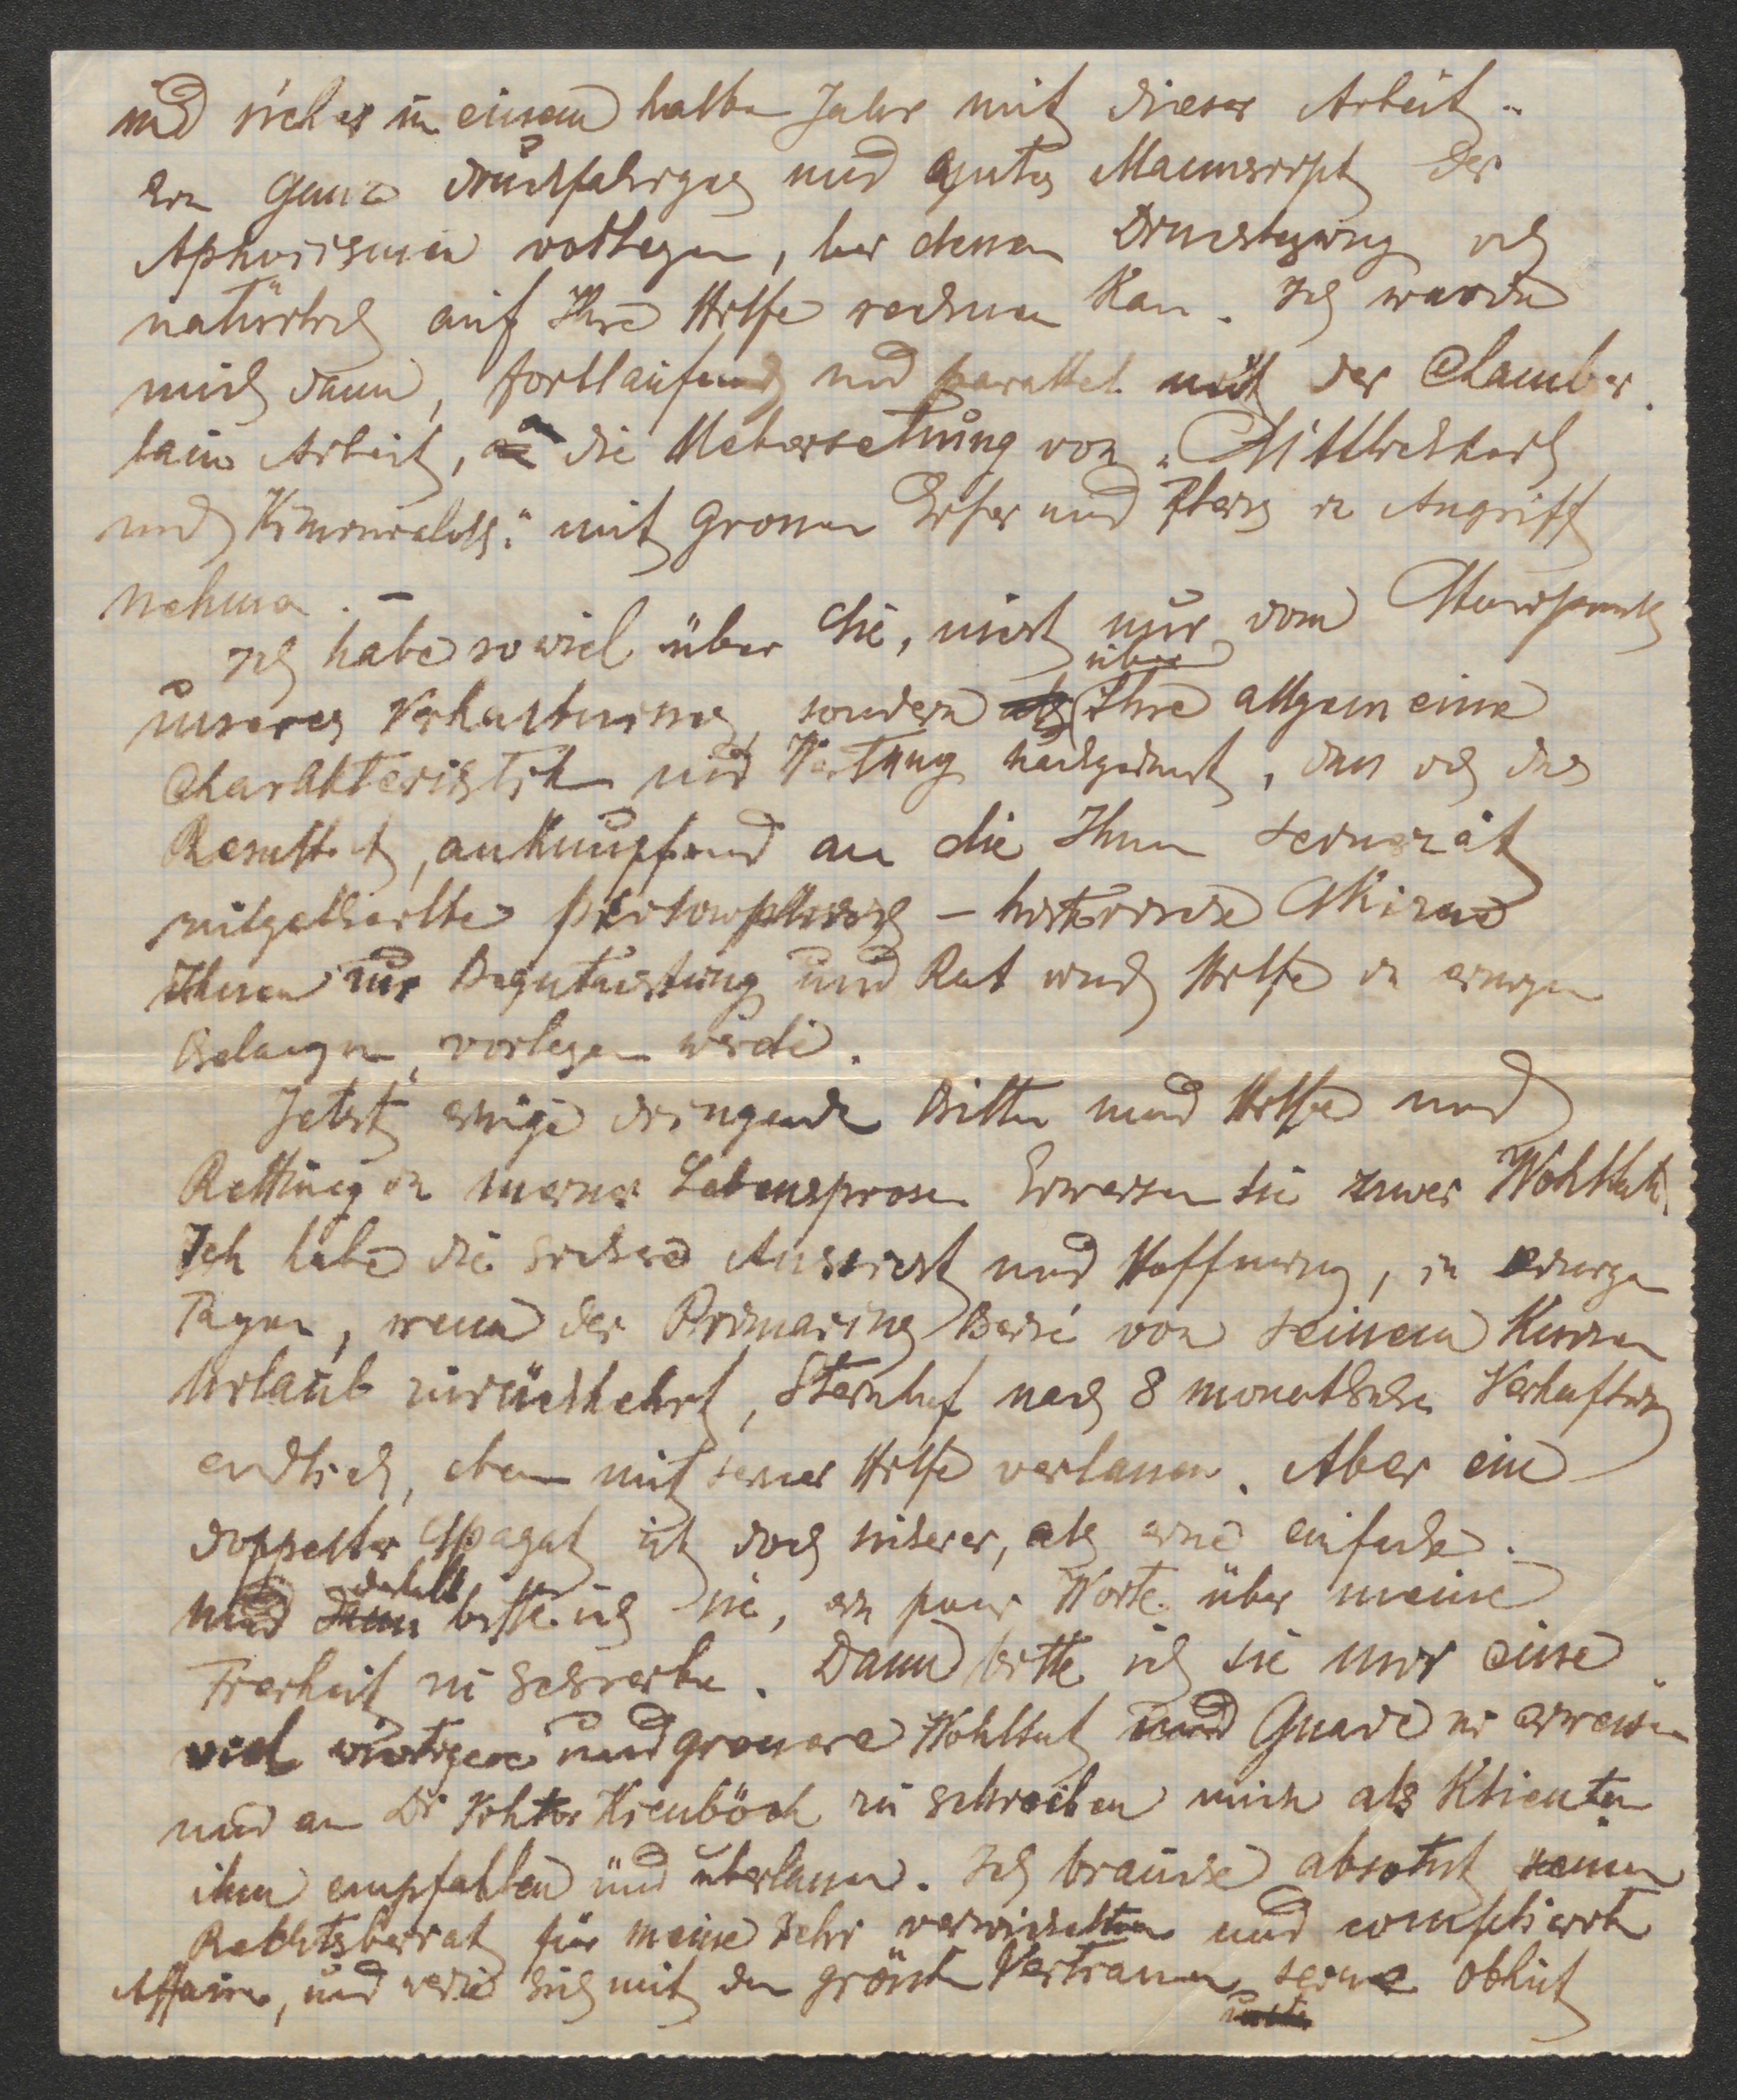 und sicher in einem halben Jahr mit dieser Arbeit
ein ganz druckfähiges und gutes Manuscript der
Aphorismen vorlegen, bei denen Drucklegung ich
natürlich auf Ihre Hilfe rechnen kan. Ich werde
mich dann, fortlaufend und parallel mit der Chamber
lain Arbeit, an die Uebersetzung von „Sittlichkeit
und Kriminalität" mit grossem Eifer und Fleiss in Angriff
nehmen. –
Ich habe so viel über Sie, nicht nur vom Standpunkt
unseres Verhältnisses, sondern über Ihre allgemeine
Charakteristik und Wertung nachgedacht, dass ich das
Resultat, anknüpfend an die Ihnen seinerzeit
mitgetheilte philosophisch – historische Skizze
Ihnen zur Begutachtung und Rat und Hilfe in einigen
Belangen, vorlegen werde.
Jetzt einige dringende Bitten und Hilfe und
Rettung in meiner Lebensprosa. Erweisen Sie zwei Wohltaten.
Ich habe die sichere Aussicht und Hoffnung, in einigen
Tagen, wenn der Primarius Berzé von seinem kurzen
Urlaub zurückkehrt, Steinhof nach 8 monatlicher Verhaftung
endlich, eben mit seiner Hilfe verlassen. Aber ein
doppelter Spagat ist doch sicherer, als eine einfache.
und deshalb bitte ich Sie, ein paar Worte über meine
Freiheit zu schreiben. Dann bitte ich Sie mir eine
viel wichtigere und grössere Wohltat und Gnade zu erweisen
und an Dr Viktor Kienböck zu schreiben mich als Klienten
ihm empfehlen und überlassen. Ich brauche absolut seinen
Rechtsbeirat für meine sehr verwickelten und complicirte
Affairen, und werde sich mit den grössten Vertrauen seine Obhut